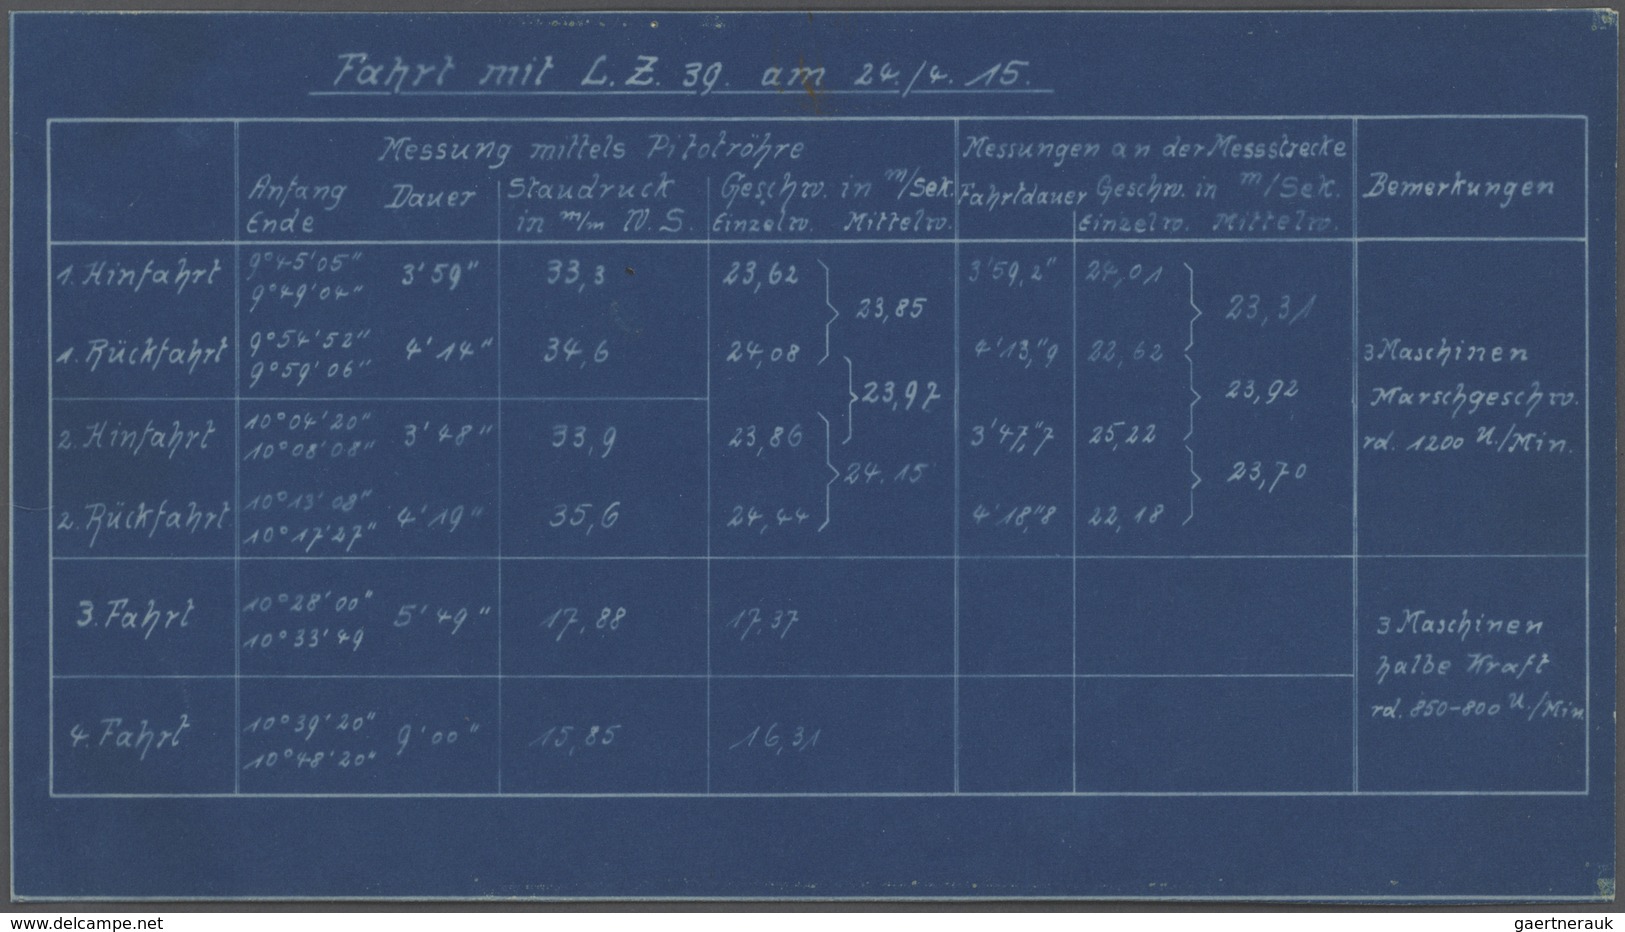 Fahrt mit L. Z. 39. am 24./4. 15.
Messung mittels Pitotröhre
Messungen an der Messstrecke
Anfang Ende
Dauer
Staudruck in m/m W. S.
Geschw. in m/Sek.
Einzelw. Mittelw.
Fahrtdauer
Geschw. in m/Sek.
Einzelw. Mittelw.
Bemerkungen
1. Hinfahrt 9°45'05" 9°49'04" 3'59" 33,3 23,62 3'59,2" 24,01
23,85 23,31
1. Rückfahrt 9°54'52" 9°59'06" 4'14" 34,6 24,08 4'13,"9 22,62
23,97 23,92
2. Hinfahrt 10°04'20" 10°08'08" 3'48" 33,9 23,86 3'47,"7 25,22
24.15 23,70
2. Rückfahrt 10°13'08" 10°17'27" 4'19" 35,6 24,44 4'18,"8 22,18
3 Maschinen
Marschgeschw.
rd. 1200 U./Min.
3. Fahrt 10°28'00" 10°33'49 5'49" 17,88 17,37
4. Fahrt 10°39'20" 10°48'20" 9'00" 15,85 16,31
3 Maschinen
halbe Kraft
rd. 850-800 U./Min
www.delcampe.net
gaertnerauk